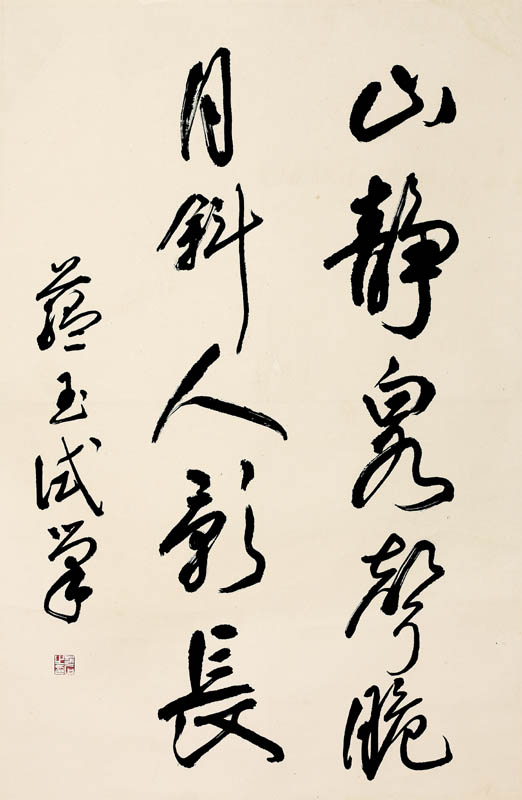 山靜泉聲脆
月斜人影長
蘊玉試筆